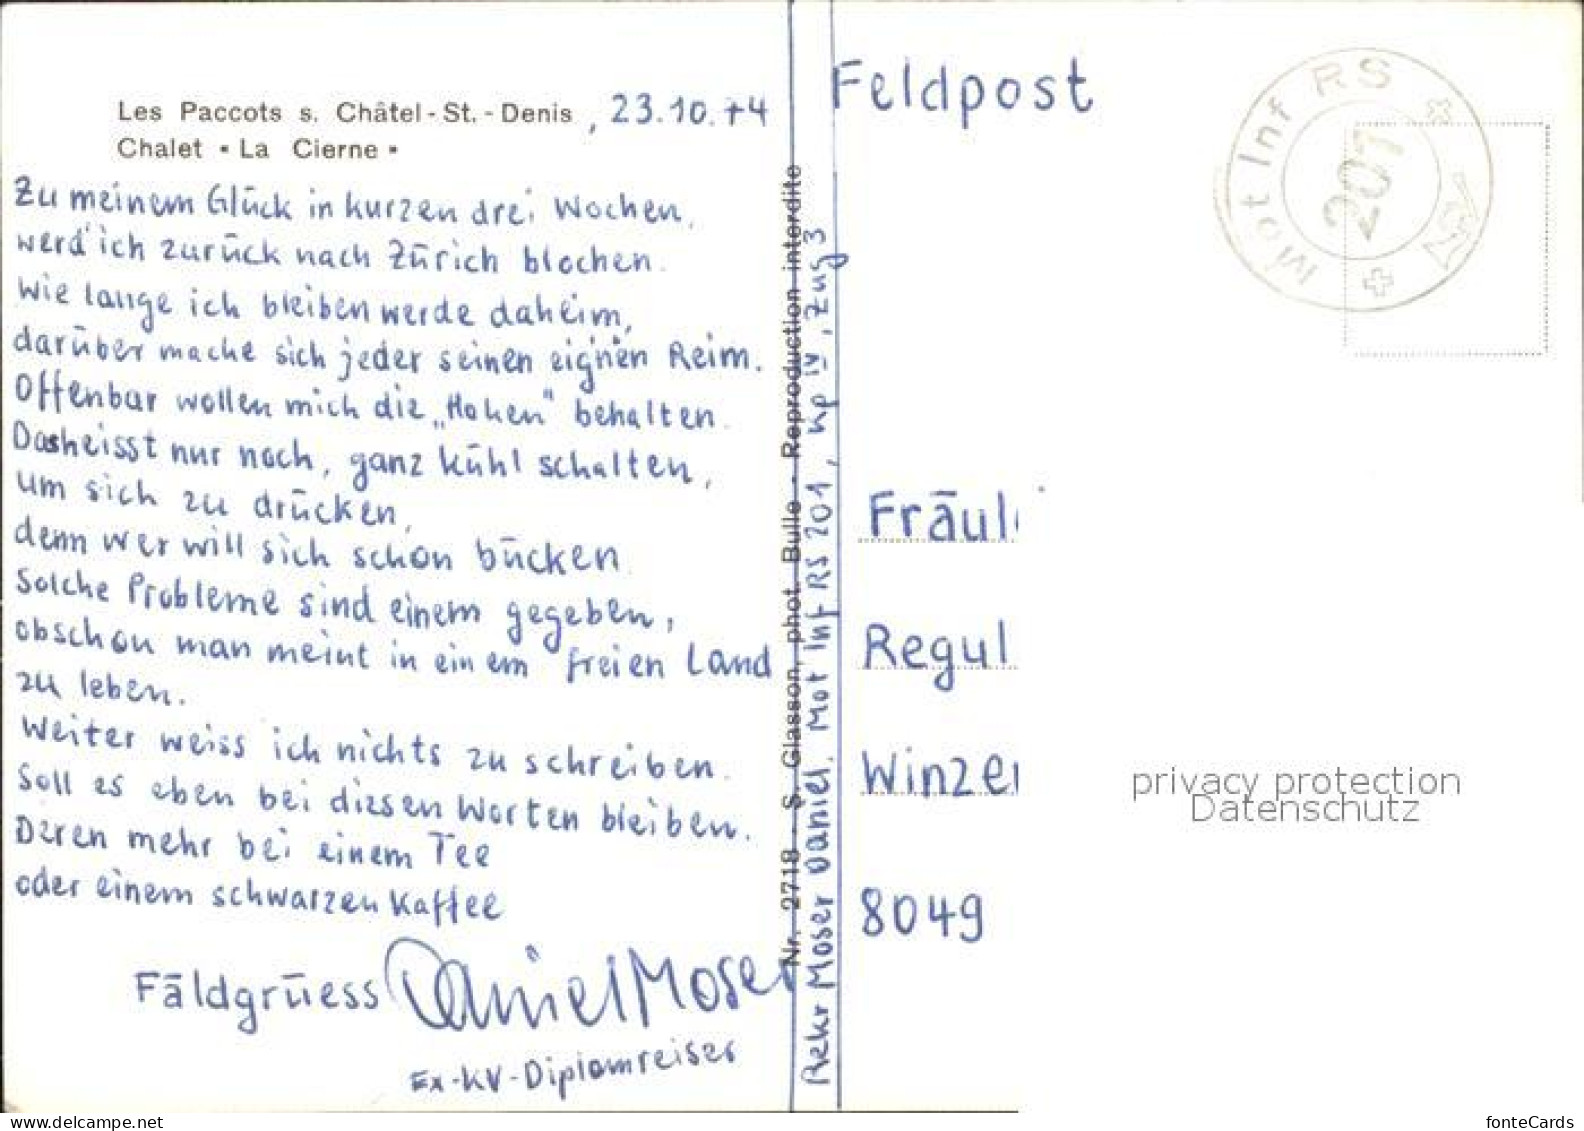 Les Paccots s. Châtel-St.-Denis , 23.10.74
Chalet « La Cierne »
Zu meinem Glück in kurzen drei Wochen,
werd' ich zurück nach Zürich blochen.
Wie lange ich bleiben werde daheim,
darüber mache sich jeder seinen eig'nen Reim.
Offenbar wollen mich die „Hohen" behalten.
Das heisst nur noch, ganz kühl schalten,
um sich zu drücken,
denn wer will sich schon bücken.
Solche Probleme sind einem gegeben,
obschon man meint in einem freien Land
zu leben.
Weiter weiss ich nichts zu schreiben.
Soll es eben bei diesen Worten bleiben.
Deren mehr bei einem Tee
oder einem schwarzen Kaffee
Fäldgrüess Daniel Moser
Ex-KV-Diplomreiser
Nr. 2718 - S. Glasson, phot. Bulle - Reproduction interdite
Rekr Moser Daniel, Mot Inf RS 201, Kp IV, Zug 3
Feldpost
Mot Inf RS
201
Fräul
Regul
Winzer
8049
privacy protection
Datenschutz
www.delcampe.net
fonteCards